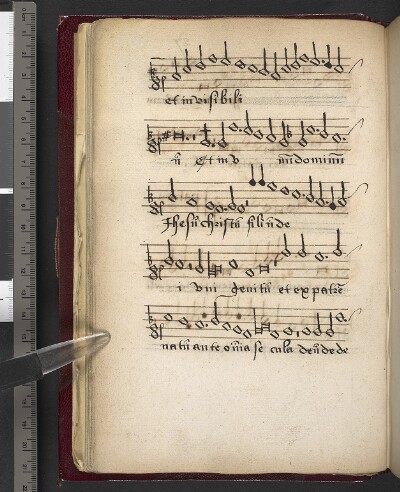 et invisibili
ū Et in v num dominum
Jhesū christū filiū de
i vni genitū et ex patre
natū ante om̄ia se cula deū de de